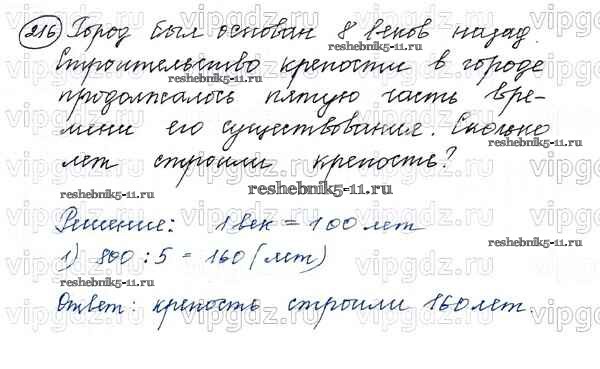 216 Город был основан 8 веков назад.
Строительство крепости в городе
продолжалось пятую часть вре-
мени его существования. Сколько
лет строили крепость?
Решение: 1 век = 100 лет
1) 800 : 5 = 160 (лет)
Ответ: крепость строили 160 лет.
vipgdz.ru
reshebnik5-11.ru